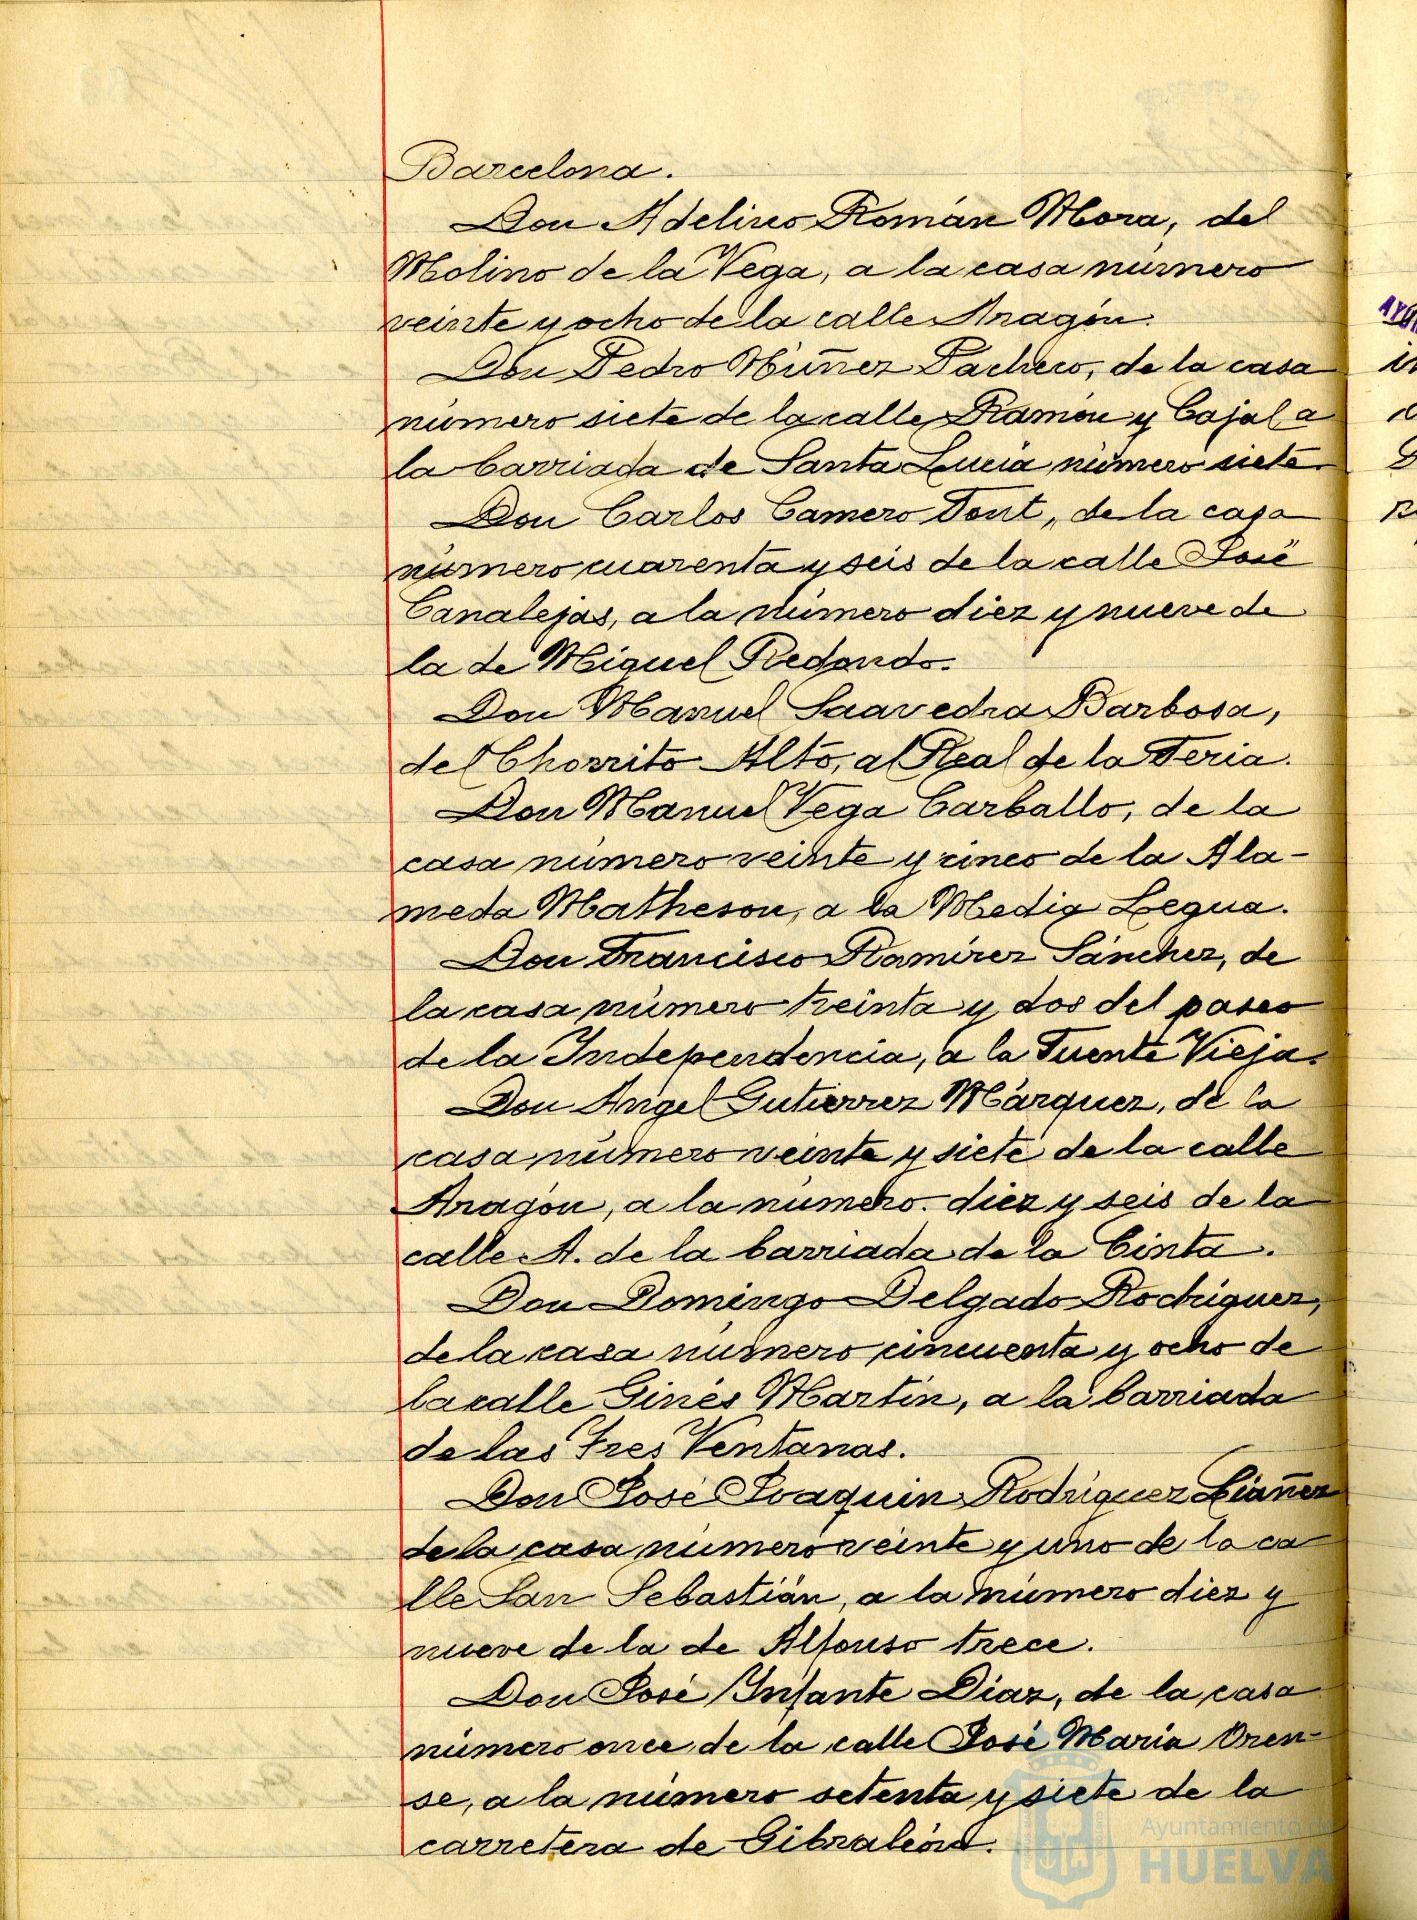 Barcelona.
Don Adelino Román Mora, del
Molino de la Vega, a la casa número
veinte y ocho de la calle Aragón.
Don Pedro Núñez Pachero, de la casa
número siete de la calle Ramón y Cajal a
la barriada de Santa Lucía número siete.
Don Carlos Camero Font, de la casa
número cuarenta y seis de la calle José
Canalejas, a la número diez y nueve de
la de Miguel Redondo.
Don Manuel Saavedra Barbosa,
del Chorrito Alto, al Real de la Feria.
Don Manuel Vega Carballo, de la
casa número veinte y cinco de la Ala-
meda Matheson, a la Media Legua.
Don Francisco Ramírez Sánchez, de
la casa número treinta y dos del paseo
de la Independencia, a la Fuente Vieja.
Don Angel Gutierrez Márquez, de la
casa número veinte y siete de la calle
Aragón, a la número. diez y seis de la
calle A. de la barriada de la Cinta.
Don Domingo Delgado Rodríguez,
de la casa número cincuenta y ocho de
la calle Ginés Martín, a la barriada
de las Tres Ventanas.
Don José Joaquín Rodríguez Liáñez
de la casa número veinte y uno de la ca
lle San Sebastián, a la número diez y
nueve de la de Alfonso trece.
Don José Infante Díaz, de la casa
número once de la calle José María Oren-
se, a la número setenta y siete de la
carretera de Gibraleón.
Ayuntamiento de
HUELVA